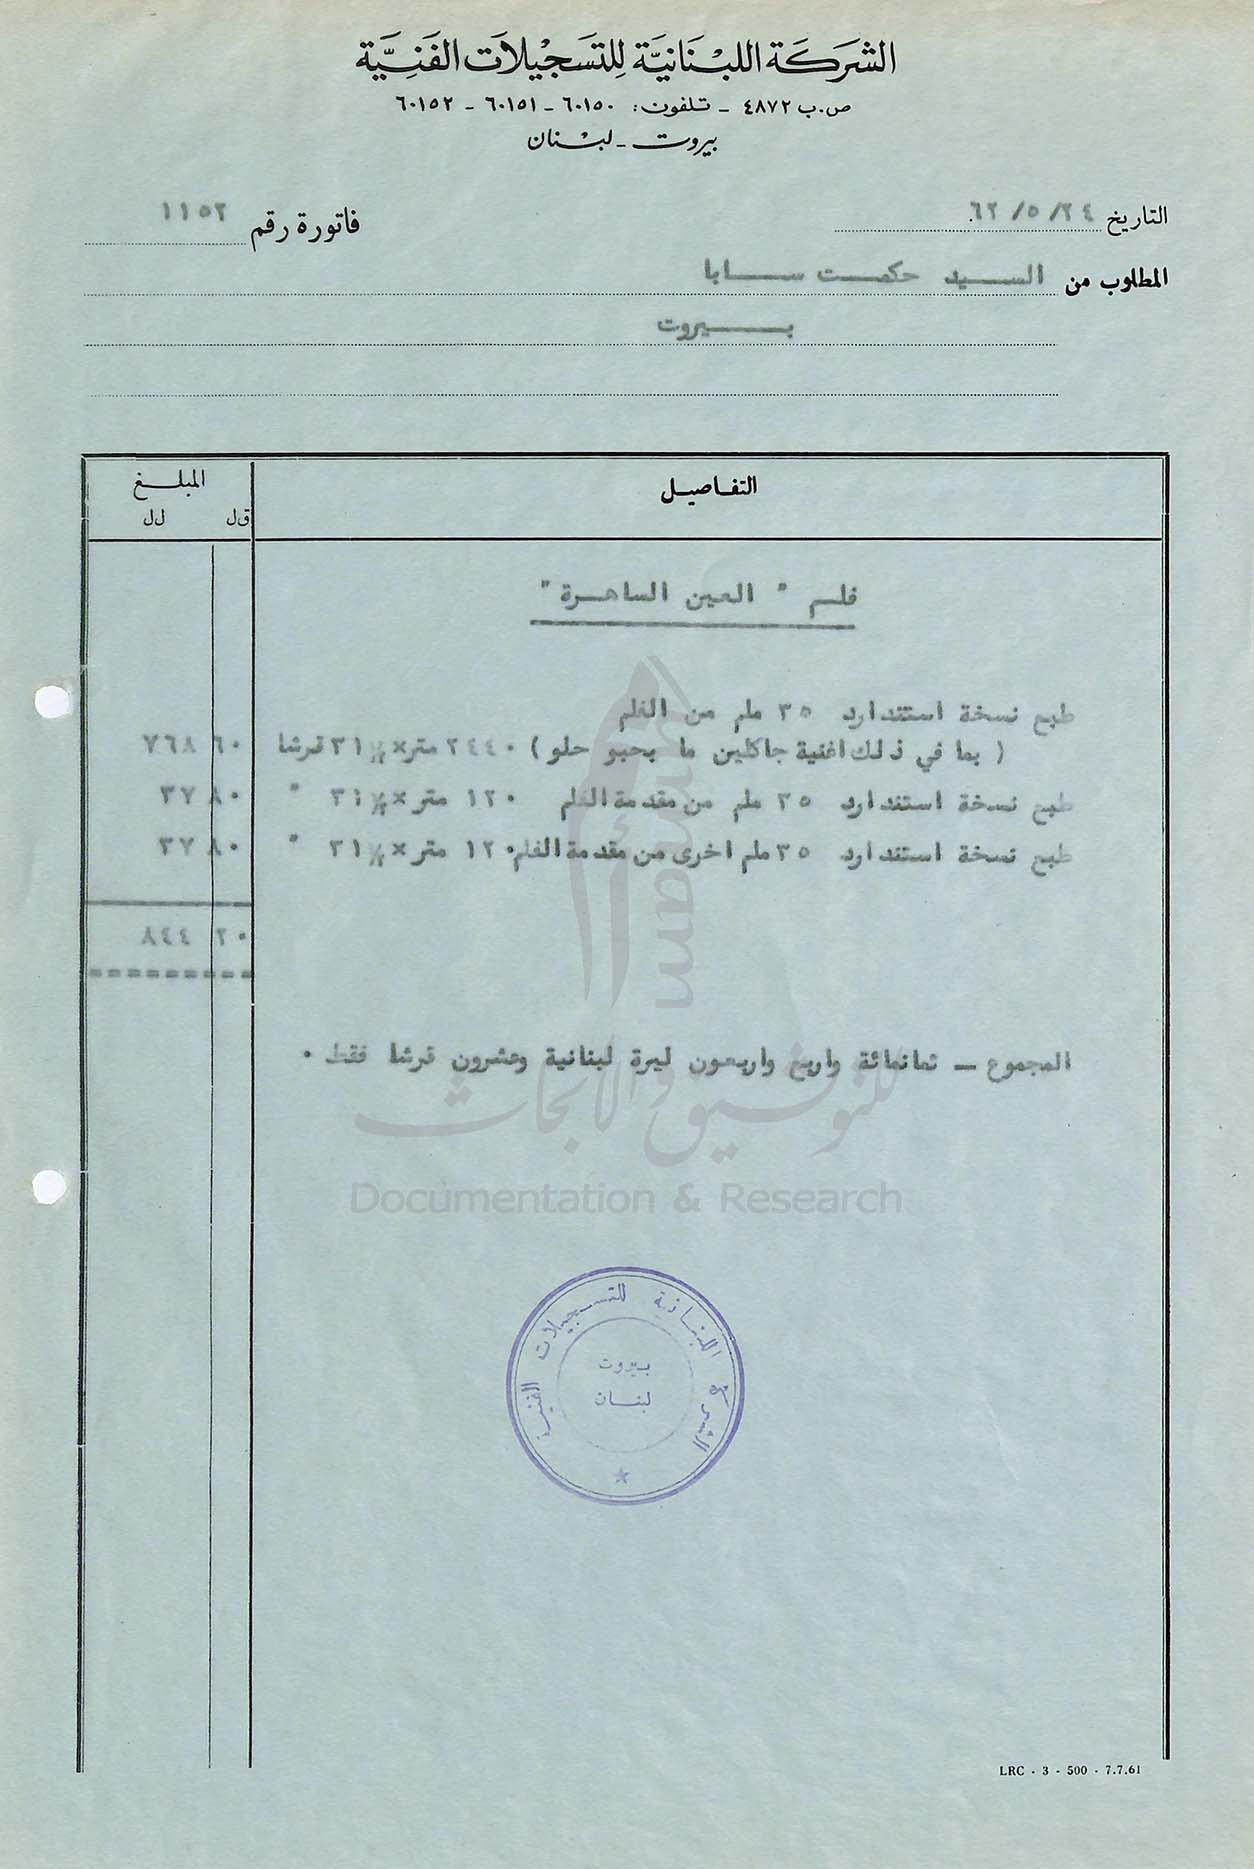 الشركة اللبنانية للتسجيلات الفنية
ص.ب ٤٨٧٢ - تلفون: ٦٠١٥٠ - ٦٠١٥١ - ٦٠١٥٢
بيروت - لبنان
التاريخ ٢٤/٥/٦٢. فاتورة رقم ١١٥٢
المطلوب من السيد حكمت سابا
بيروت
التفاصيل المبلغ
ق.ل ل.ل
فلم " العين الساهرة "
طبع نسخة استندارد ٣٥ ملم من الفلم
( بما في ذلك اغنية جاكلين ما بحبو حلو ) ٢٤٤٠ متر × ٣١ ½ قرشا ٦٠ ٧٦٨
طبع نسخة استندارد ٣٥ ملم من مقدمة الفلم ١٢٠ متر × ٣١ ½ " ٨٠ ٣٧
طبع نسخة استندارد ٣٥ ملم اخرى من مقدمة الفلم ١٢٠ متر × ٣١ ½ " ٨٠ ٣٧
٢٠ ٨٤٤
المجموع – ثمانمائة واربع واربعون ليرة لبنانية وعشرون قرشا فقط .
للتوثيق والأبحاث
Documentation & Research
الشركة اللبنانية للتسجيلات الفنية
بيروت
لبنان
LRC - 3 - 500 - 7.7.61